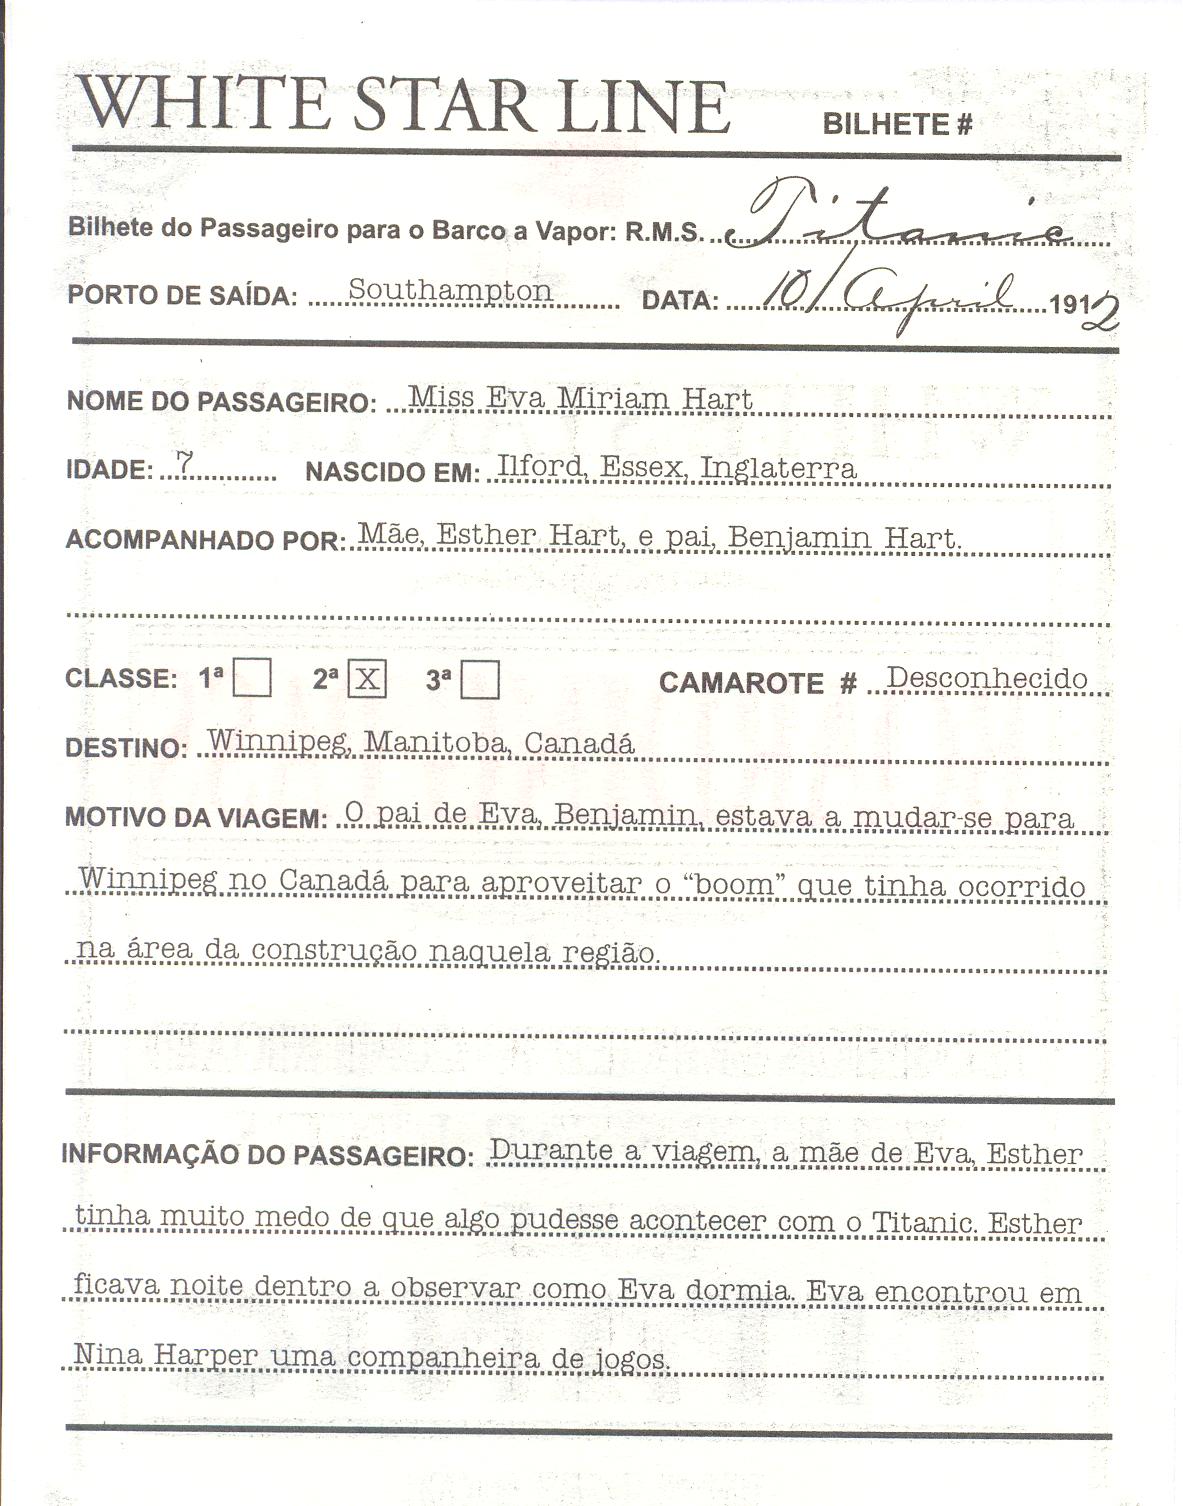 WHITE STAR LINE BILHETE #
Bilhete do Passageiro para o Barco a Vapor: R.M.S. Titanic
PORTO DE SAÍDA: Southampton DATA: 10/April 1912
NOME DO PASSAGEIRO: Miss Eva Miriam Hart
IDADE: 7 NASCIDO EM: Ilford, Essex, Inglaterra
ACOMPANHADO POR: Mãe, Esther Hart, e pai, Benjamin Hart.
CLASSE: 1ª 2ª X 3ª CAMAROTE # Desconhecido
DESTINO: Winnipeg, Manitoba, Canadá
MOTIVO DA VIAGEM: O pai de Eva, Benjamin, estava a mudar-se para
Winnipeg no Canadá para aproveitar o “boom” que tinha ocorrido
na área da construção naquela região.
INFORMAÇÃO DO PASSAGEIRO: Durante a viagem, a mãe de Eva, Esther
tinha muito medo de que algo pudesse acontecer com o Titanic. Esther
ficava noite dentro a observar como Eva dormia. Eva encontrou em
Nina Harper uma companheira de jogos.